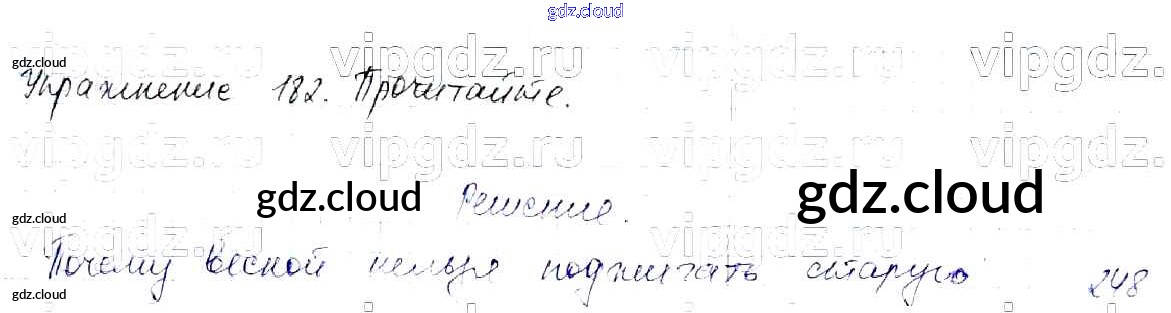 gdz.cloud
vipgdz.ru vipgdz.ru vipgdz.ru vipgdz.ru
gdz.cloud
Упражнение 182. Прочитайте.
gdz.cloud
vipgdz.ru vipgdz.ru vipgdz.ru vipgdz.ru
gdz.cloud gdz.cloud
Решение.
gdz.cloud
vipgdz.ru vipgdz.ru vipgdz.ru vipgdz.ru
Почему весной нельзя поджигать старую 248
gdz.cloud